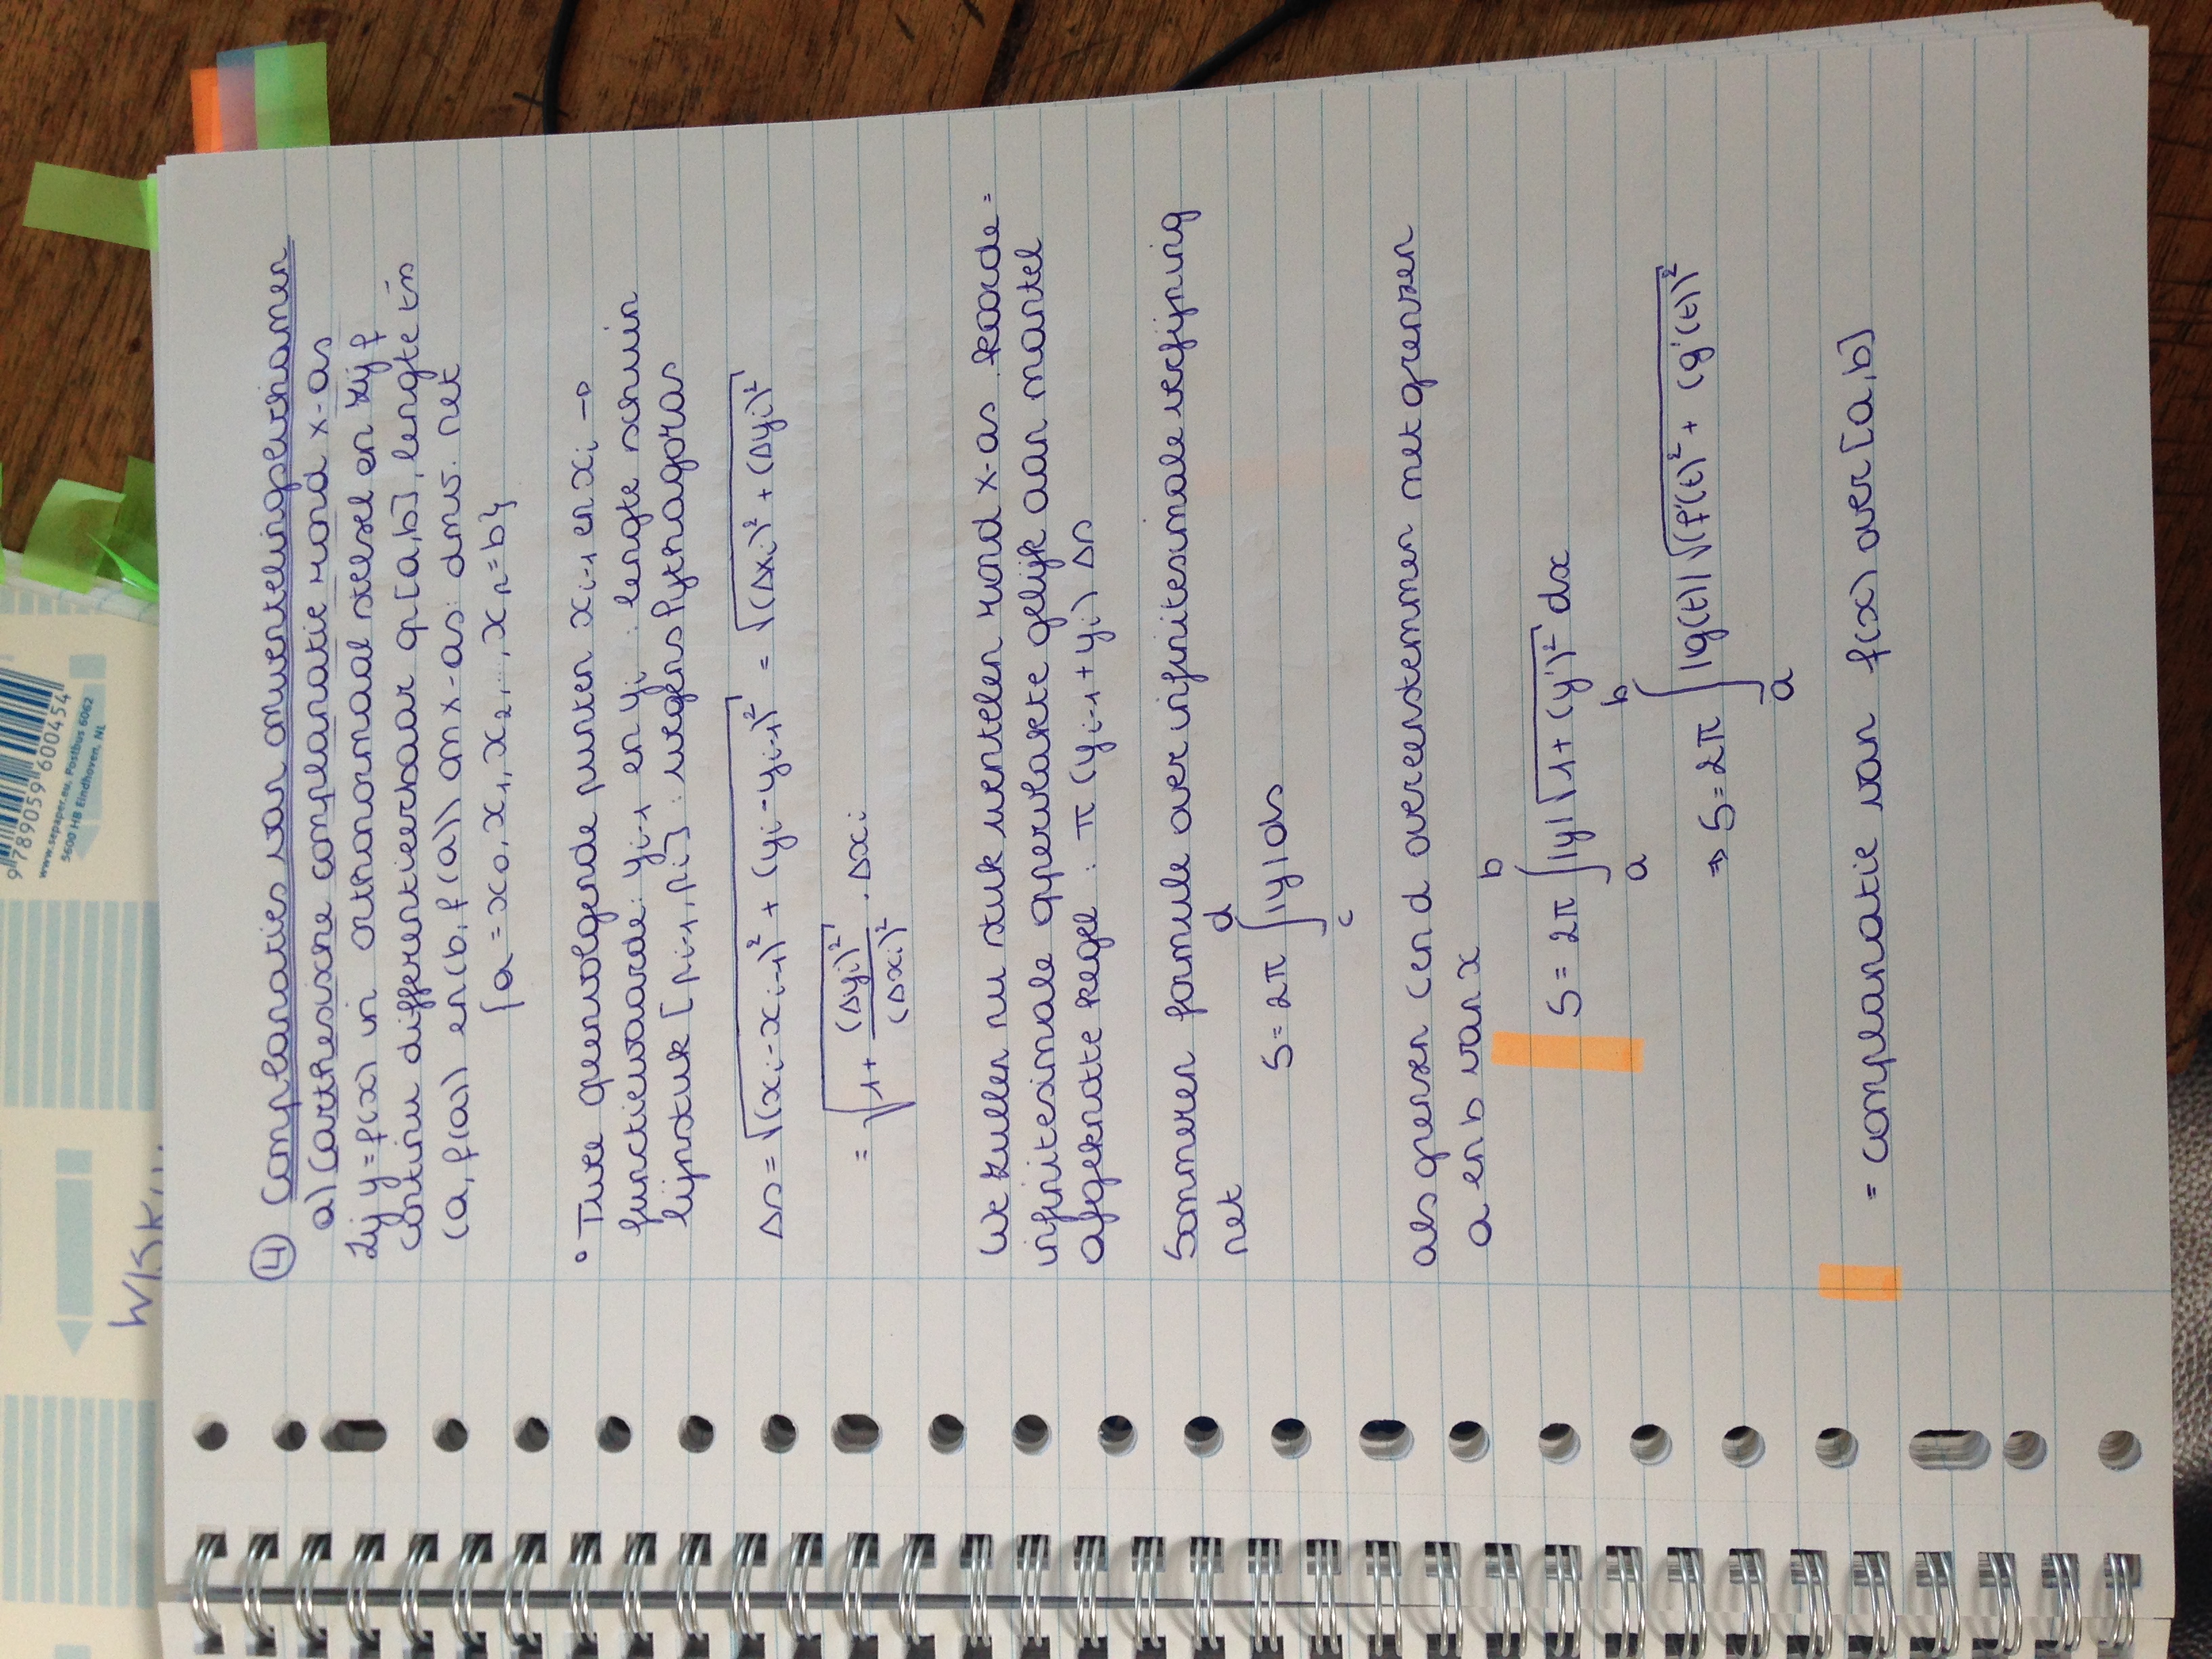 9 789059 600454
www.sepaper.eu, Postbus 6062
5600 HB Eindhoven, NL
④ Complanaties van omwentelingslichamen
a) Carthesische complanatie rond x-as
Zij y=f(x) in orthonormaal stelsel en zij f
continu differentieerbaar op [a,b], lengte tss
(a, f(a)) en (b, f(a)) om x-as: dmv. net
{a = x₀, x₁, x₂, .., xₙ = b}
° Twee opeenvolgende punten xᵢ₋₁ en xᵢ →
functiewaarde: yᵢ₋₁ en yᵢ : lengte schuin
lijnstuk [pᵢ₋₁, pᵢ] : wegens Pythagoras
Δs = √((xᵢ-xᵢ₋₁)² + (yᵢ-yᵢ₋₁)²) = √((Δxᵢ)² + (Δyᵢ)²)
= √(1 + (Δyᵢ)²/(Δxᵢ)²) . Δxᵢ
We zullen nu stuk wentelen rond x-as. koorde =
infinitesimale oppervlakte gelijk aan mantel
afgeknotte kegel : π (yᵢ₋₁ + yᵢ) Δs
Sommeren formule over infinitesimale verfijning
net
S = 2π ∫_c^d |y| ds
als grenzen c en d overeenstemmen met grenzen
a en b van x
S = 2π ∫_a^b |y| √(1 + (y')²) dx
⇒ S = 2π ∫_a^b |g(t)| √((f'(t)² + (g'(t))²
= complanatie van f(x) over [a,b]